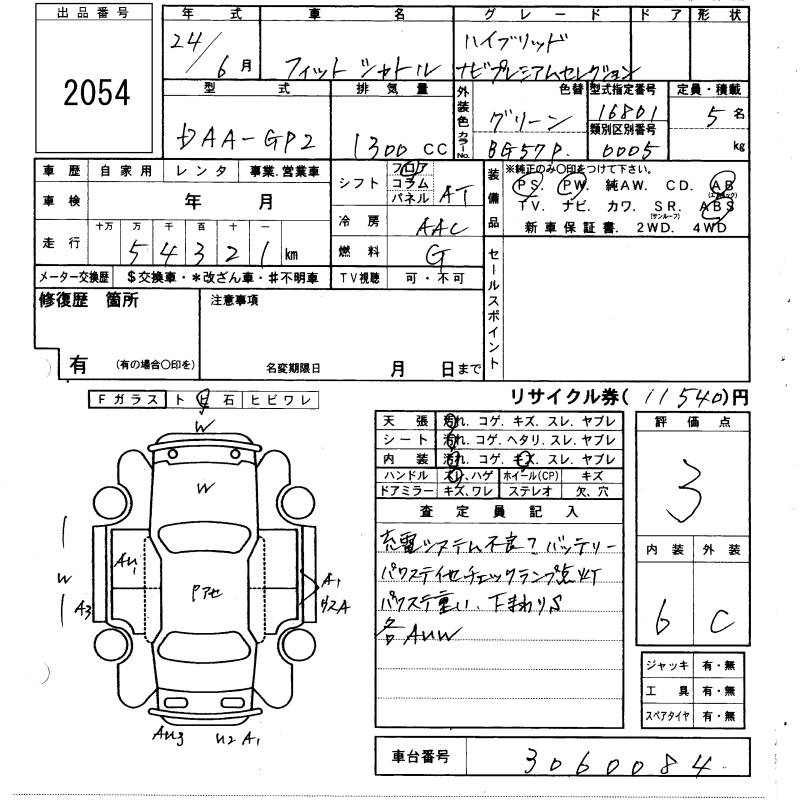 出品番号 年式 車名 グレード ドア 形状
2054 24/6月 フィットシャトル ハイブリッド
ナビプレミアムセレクション
型式 排気量 外装色 カラーNo. 色替 型式指定番号 定員・積載
DAA-GP2 1300 CC グリーン 16801 5名
類別区別番号
BG57P 0005 kg
車歴 自家用 レンタ 事業.営業車 シフト フロア コラム パネル AT 装備品 ※純正のみ〇印をつけて下さい。
PS. PW. 純AW. CD. AB (エアバック)
車検 年 月 TV. ナビ. カワ. SR. (サンルーフ) ABS
冷房 AAC 新車保証書. 2WD. 4WD
走行 十万 万 千 百 十 一
54321 km 燃料 G
メーター交換歴 $交換車・*改ざん車・#不明車 TV視聴 可・不可 セールスポイント
修復歴 箇所 注意事項
有 (有の場合〇印を) 名変期限日 月 日まで
リサイクル券( 11540)円
Fガラス トビ石 ヒビワレ
天張 汚れ. コゲ. キズ. スレ. ヤブレ 評価点
シート 汚れ. コゲ. ヘタリ. スレ. ヤブレ 3
内装 汚れ. コゲ. キズ. スレ. ヤブレ
ハンドル スレ,ハゲ ホイール(CP) キズ
ドアミラー キズ,ワレ ステレオ 欠、穴
査定員記入
充電システム不良?バッテリー
内装 外装
パワステイセチェックランプ点灯
パワステ重い、下まわりS
6 C
各AUW
W
W
AU1
W
A3
Pアセ
A1
U2A
AU3 U2 A1
ジャッキ 有・無
工具 有・無
スペアタイヤ 有・無
車台番号 3060084